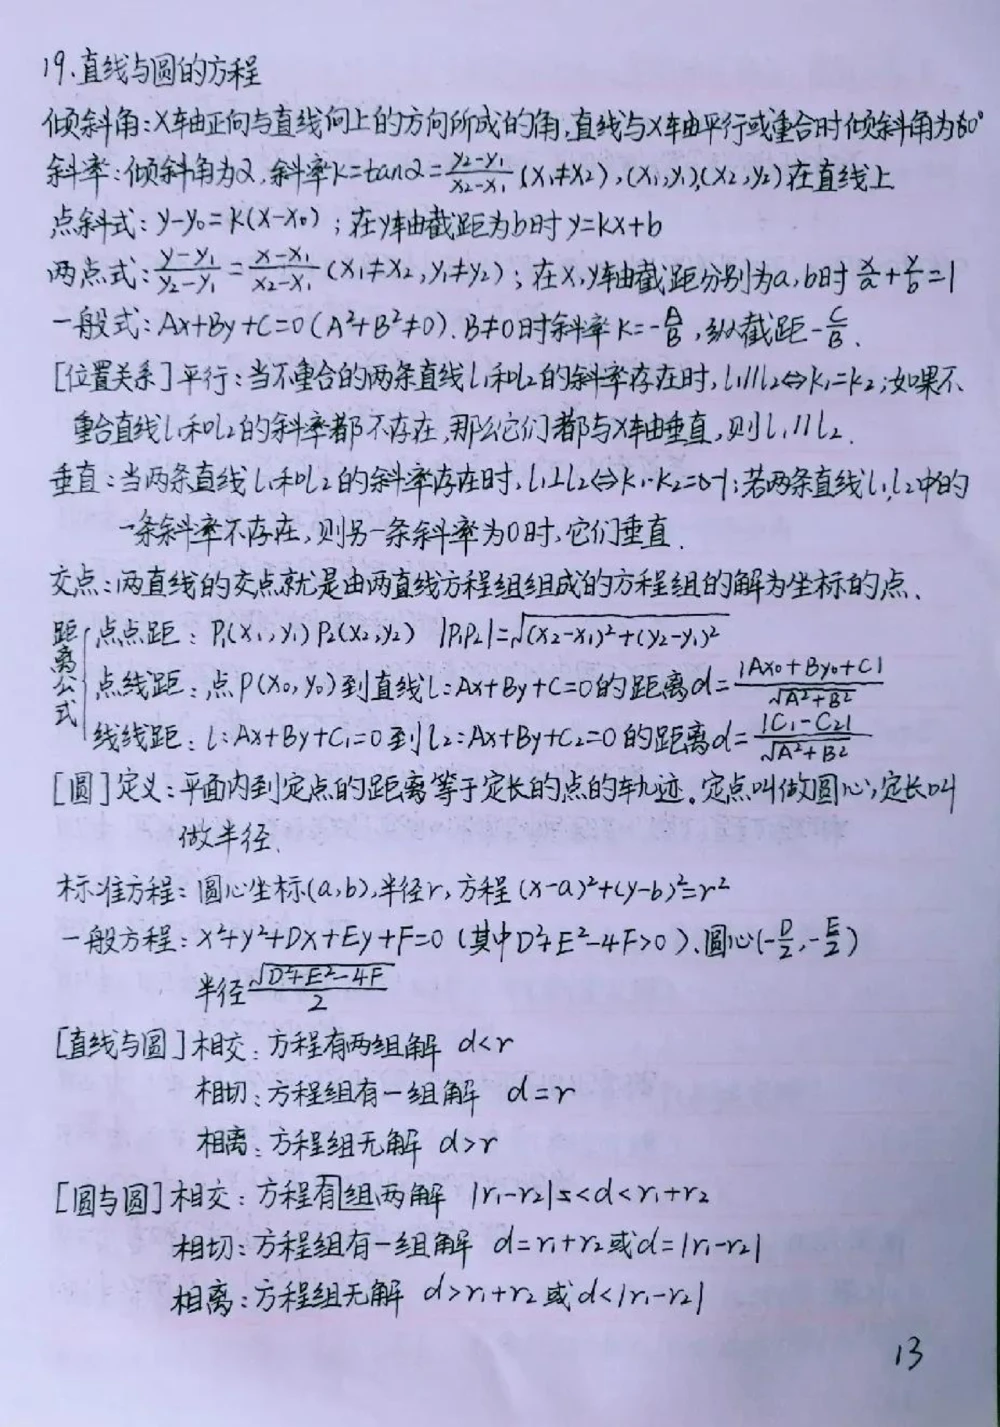 19.直线与圆的方程
倾斜角:X轴正向与直线向上的方向所成的角.直线与X轴平行或重合时倾斜角为0°
斜率:倾斜角为α,斜率k=tanα=\frac{y₂-y₁}{x₂-x₁}(x₁≠x₂),(x₁,y₁),(x₂,y₂)在直线上
点斜式:y-y₀=k(x-x₀);在y轴截距为b时y=kx+b
两点式:\frac{y-y₁}{y₂-y₁}=\frac{x-x₁}{x₂-x₁}(x₁≠x₂,y₁≠y₂);在x,y轴截距分别为a,b时\frac{x}{a}+\frac{y}{b}=1
一般式:Ax+By+C=0(A²+B²≠0).B≠0时斜率k=-\frac{A}{B},纵截距-\frac{C}{B}.
[位置关系]平行:当不重合的两条直线l₁和l₂的斜率存在时,l₁//l₂⇔k₁=k₂;如果不
重合直线l₁和l₂的斜率都不存在,那么它们都与X轴垂直,则l₁//l₂.
垂直:当两条直线l₁和l₂的斜率存在时,l₁⊥l₂⇔k₁·k₂=-1;若两条直线l₁,l₂中的
一条斜率不存在,则另一条斜率为0时,它们垂直.
交点:两直线的交点就是由两直线方程组组成的方程组的解为坐标的点.
距离公式
点点距:P₁(x₁,y₁)P₂(x₂,y₂) |P₁P₂|=√(x₂-x₁)²+(y₂-y₁)²
点线距:点P(x₀,y₀)到直线l:Ax+By+C=0的距离d=\frac{|Ax₀+By₀+C|}{√A²+B²}
线线距:l:Ax+By+C₁=0到l₂:Ax+By+C₂=0的距离d=\frac{|C₁-C₂|}{√A²+B²}
[圆]定义:平面内到定点的距离等于定长的点的轨迹。定点叫做圆心,定长叫
做半径.
标准方程:圆心坐标(a,b),半径r,方程(x-a)²+(y-b)²=r²
一般方程:x²+y²+Dx+Ey+F=0(其中D²+E²-4F>0).圆心(-\frac{D}{2},-\frac{E}{2})
半径\frac{√D²+E²-4F}{2}
[直线与圆]相交:方程有两组解 d<r
相切:方程组有一组解 d=r
相离:方程组无解 d>r
[圆与圆]相交:方程有组两解 |r₁-r₂|<d<r₁+r₂
相切:方程组有一组解 d=r₁+r₂或d=|r₁-r₂|
相离:方程组无解 d>r₁+r₂或d<|r₁-r₂|
13